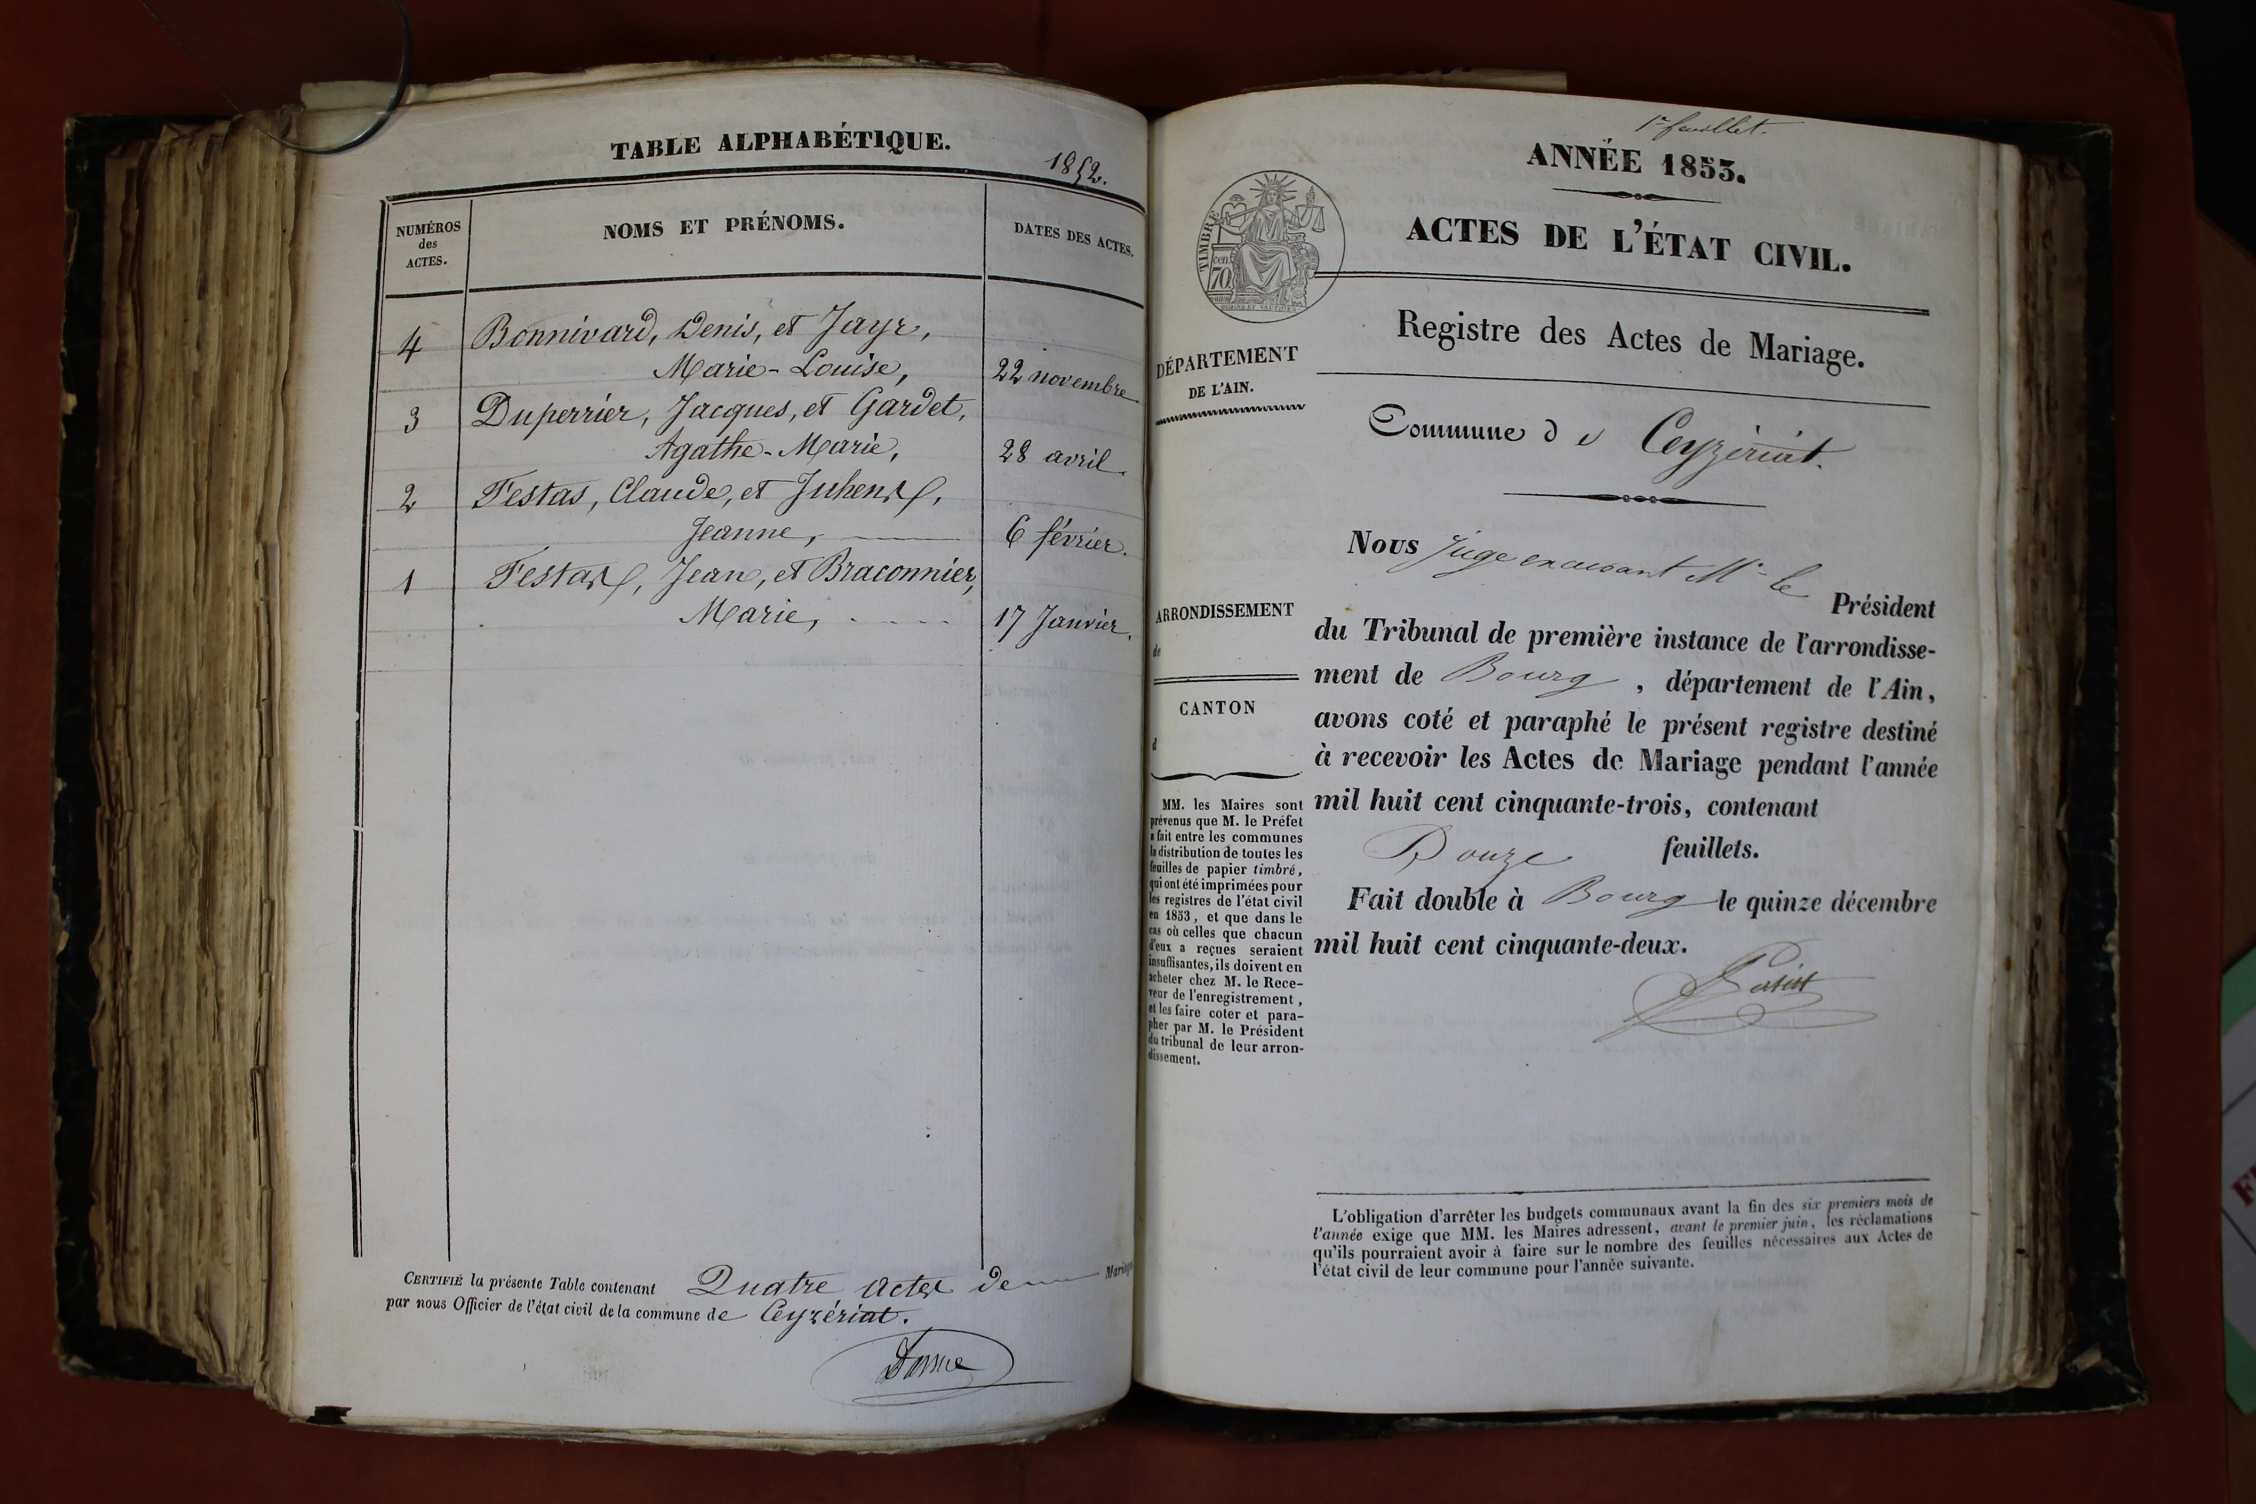 TABLE ALPHABÉTIQUE.
1852.
NUMÉROS
des
ACTES.
NOMS ET PRÉNOMS.
DATES DES ACTES.
4 Bonnivard, Denis, et Jayr,
Marie-Louise, 22 novembre.
3 Duperrier, Jacques, et Gardet,
Agathe-Marie, 28 avril.
2 Festas, Claude, et
Jeanne, 6 février.
1 Festas, Jean, et Braconnier,
Marie, 17 Janvier.
CERTIFIÉ la présente Table contenant Quatre actes de Mariage
par nous Officier de l'état civil de la commune de Ceyzériat.
1er feuillet.
ANNÉE 1853.
ACTES DE L'ÉTAT CIVIL.
TIMBRE
70 cen
Registre des Actes de Mariage.
DÉPARTEMENT
DE L'AIN.
Commune de Ceyzériat.
Nous Juge en cusant Mr le
Président
du Tribunal de première instance de l'arrondisse-
ment de Bourg, département de l'Ain,
avons coté et paraphé le présent registre destiné
à recevoir les Actes de Mariage pendant l'année
mil huit cent cinquante-trois, contenant
Douze feuillets.
Fait double à Bourg le quinze décembre
mil huit cent cinquante-deux.
ARRONDISSEMENT
de
CANTON
d
MM. les Maires sont
prévenus que M. le Préfet
a fait entre les communes
la distribution de toutes les
feuilles de papier timbré,
qui ont été imprimées pour
les registres de l'état civil
en 1853, et que dans le
cas où celles que chacun
d'eux a reçues seraient
insuffisantes, ils doivent en
acheter chez M. le Rece-
veur de l'enregistrement,
et les faire coter et para-
pher par M. le Président
du tribunal de leur arron-
dissement.
L'obligation d'arrêter les budgets communaux avant la fin des six premiers mois de
l'année exige que MM. les Maires adressent, avant le premier juin, les réclamations
qu'ils pourraient avoir à faire sur le nombre des feuilles nécessaires aux Actes de
l'état civil de leur commune pour l'année suivante.